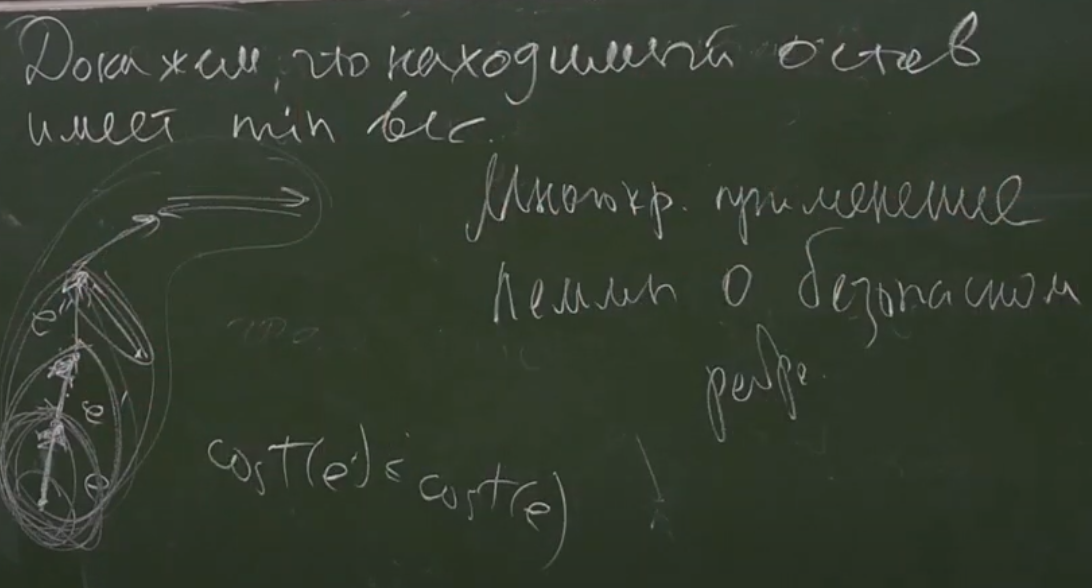 Докажем, что находимый остов
имеет min вес.
Многокр. применение
леммы о безопасном
ребре.
e''
e'
e
cost(e') ≤ cost(e)